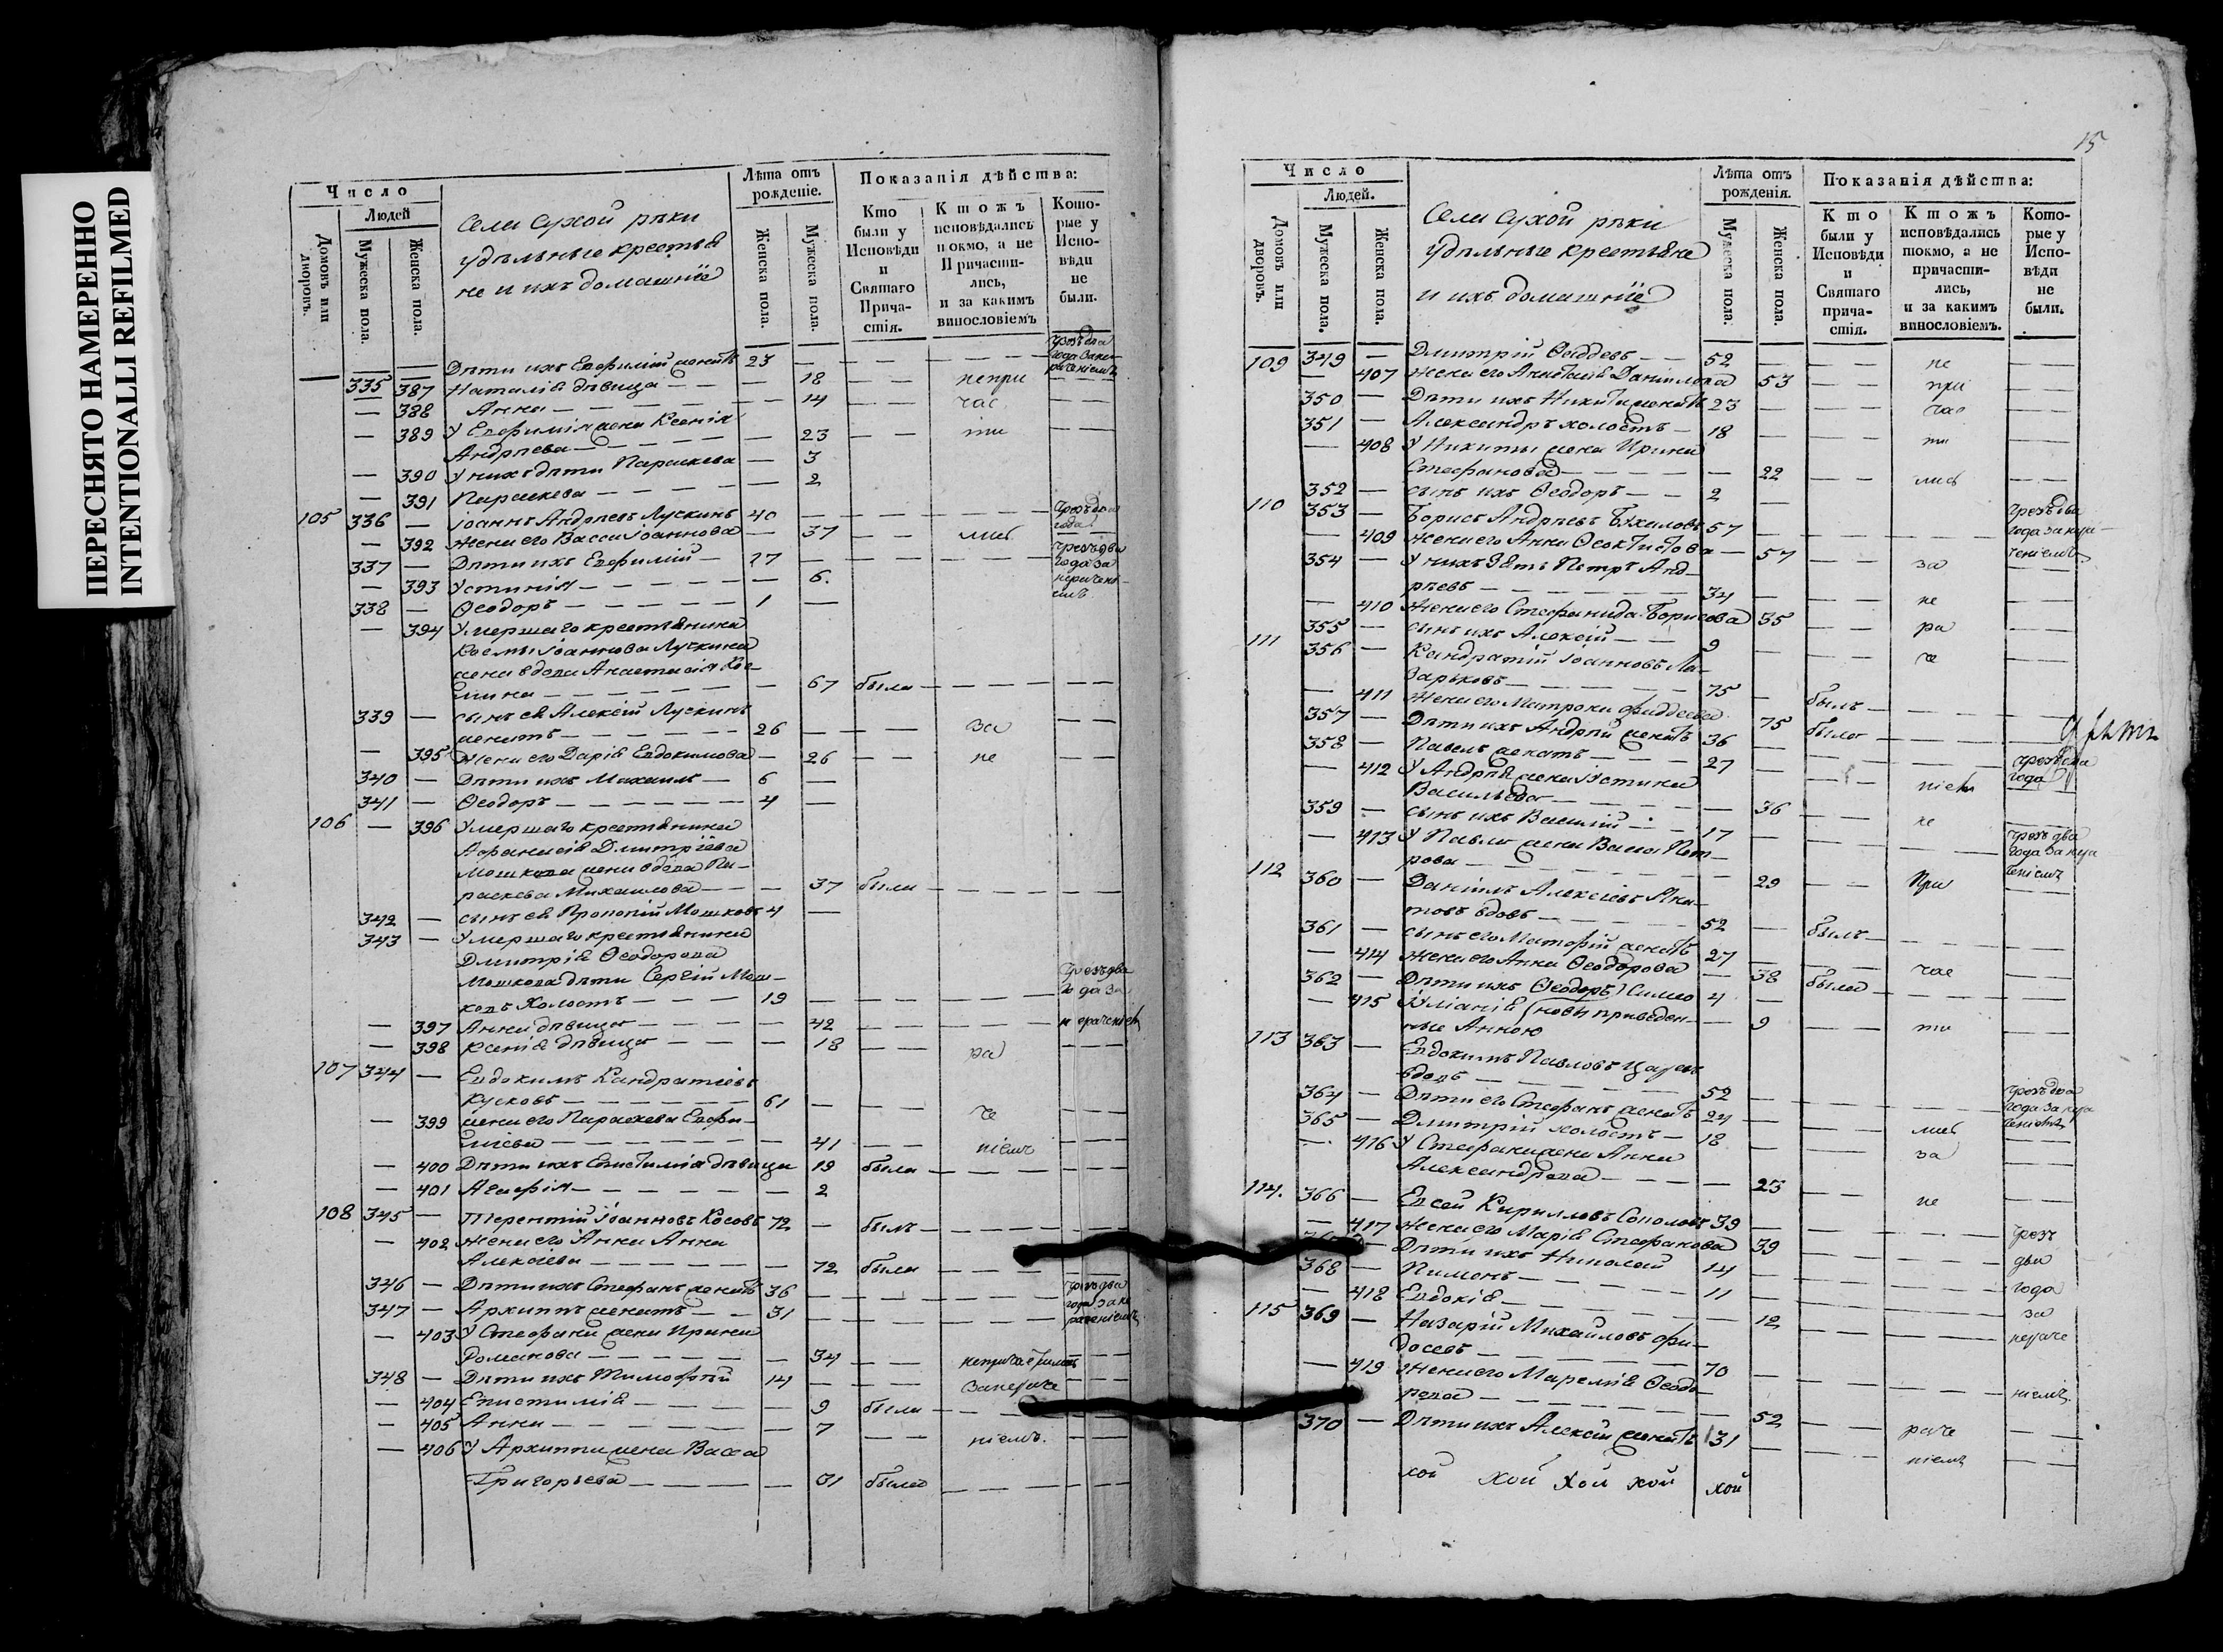 ПЕРЕСНЯТО НАМЕРЕННО
INTENTIONALLI REFILMED
Число
Людей
Домовъ или дворовъ.
Мужеска пола.
Женска пола.
Села Сухой рѣки
удѣльные крестья
не и ихъ домашніе
Лѣта отъ рожденіе.
Женска пола.
Мужеска пола.
Показанія дѣйства:
Кто были у Исповѣди и Святаго Прича-стія.
Ктожъ исповѣдались токмо, а не Причасти-лись, и за какимъ винословіемъ
Кото-рые у Испо-вѣди не были.
335 — Дѣти ихъ Евфимій женатъ 23 — — — — чрезъ два года за не раченіемъ
— 387 Наталія дѣвица — — — 18 — — непри — —
— 388 Анна — — — — 14 — — час — —
— 389 У Евфимія жена Ксенія
Андрѣева — — — — 23 — — ти — —
— 390 У нихъ дѣти Параскева — 3
— 391 Параскева — — — — 2
105 336 — Іоаннъ Андрѣевъ Лускинъ 40 — — — — чрезъ два года
— 392 Жена его Васса Іоаннова — 37 — — лись — —
337 — Дѣти ихъ Евфимій — 17 — — — — чрезъ два года за нераченіемъ
— 393 Устинія — — — — 6.
338 — Ѳеодоръ — — — — 1 —
— 394 Умершаго крестьянина
Космы Іоаннова Лускина
жена вдова Анастасія Кос-
мина — — — — 67 была — — — —
339 — сынъ ея Алексій Лускинъ
женатъ — — — — 26 — — — за — —
— 395 Жена его Дарія Евдокимова — 26 — — не — —
340 — Дѣти ихъ Михаилъ — 6 —
341 — Ѳеодоръ — — — — 4 —
106 — 396 Умершаго крестьянина
Афанасія Дмитріева
Мошкова жена вдова Па-
раскева Михаилова — — — 37 была — — — —
342 — сынъ ея Прокопій Мошковъ 4 —
343 — Умершаго крестьянина
Дмитрія Ѳеодорова
Мошкова дѣти Сергій Мош-
ковъ Холостъ — — — 19 — — — — чрезъ два года за
— 397 Анна дѣвица — — — — 42 — — — — нераченіемъ
— 398 Ксенія дѣвица — — — 18 — — ра — —
107 344 — Евдокимъ Кандратіевъ
Кусковъ — — — — 61 — — — че — —
— 399 жена его Параскева Евфи-
міева — — — — 41 — — ніемъ — —
— 400 Дѣти ихъ Епистимія дѣвица 19 была — — —
— 401 Агафія — — — — 2
108 345 — Терентій Іоанновъ Косовъ 72 — былъ — — —
— 402 жена его Анна Анна
Алексіева — — — — 72 была — — —
346 — Дѣти ихъ Стефанъ женатъ 36 — — — — чрезъ два
347 — Архиппъ женатъ — — 31 — — — — года за не раченіемъ
— 403 У Стефана жена Ирина
Романова — — — — 34 — — непричастилась — —
348 — Дѣти ихъ Тимофѣй 14 — — — занераче — —
— 404 Епистимія — — — — 9 была — —
— 405 Анна — — — — 7 — — ніемъ. — —
— 406 У Архиппа жена Васса
Григорьева — — — — 31 была — — — —
15
Число
Людей.
Домовъ или дворовъ.
Мужеска пола.
Женска пола.
Села Сухой рѣки
удѣльные крестьяне
и ихъ домашніе
Лѣта отъ рожденія.
Мужеска пола.
Женска пола.
Показанія дѣйства:
Кто были у Исповѣди и Святаго прича-стія.
Ктожъ исповѣдались токмо, а не причасти-лись, и за какимъ винословіемъ.
Кото-рые у Испо-вѣди не были.
109 349 — Дмитрій Ѳаддеевъ — — 52 — — — не —
— 407 жена его Анастасія Даніилова 53 — — при —
350 — Дѣти ихъ Никита женатъ 23 — — — час —
351 — Александръ холостъ — 18 — — — ти —
— 408 У Никиты жена Ирина
Стефанова — — — — 22 — — лись — —
352 — сынъ ихъ Ѳеодоръ — — 2 —
110 353 — Борисъ Андрѣевъ 57 — — — — чрезъ два года за нера-
— 409 жена его Анна Ѳеоктистова — 57 — — за ченіемъ
354 — У нихъ зять Петръ Анд-
рѣевъ — — — — 34 — — — не —
— 410 Жена его Стефанида Борисова 35 — — ра —
355 — сынъ ихъ Алексій — — 9 — — — че —
111 356 — Кандратій Іоанновъ Ла-
зарьковъ — — — — 75 — былъ — — —
— 411 Жена его Матрона Фаддеева 75 была — — —
357 — Дѣти ихъ Андрей женатъ 36 — — — — чрезъ два
358 — Павелъ женатъ — — 27 — — — — года
— 412 У Андрея жена Устина
Васильева — — — — 36 — — ніемъ
359 — сынъ ихъ Василій — — 17 — — — не —
— 413 У Павла жена Васса Пет-
рова — — — — 29 — — при чрезъ два года за нера ченіемъ
112 360 — Даніилъ Алексіевъ
вдовъ — — — — 52 — былъ — — —
361 — сынъ его Матфій женатъ 27 — — — час —
— 414 Жена его Анна Ѳеодорова — 38 была — — —
362 — Дѣти ихъ Ѳеодоръ 4 —
— 415 Іуліанія (новы приведен- — 9 — — ти —
ные Анною
113 363 — Евдокимъ Павловъ
вдовъ — — — — 52 — — — — чрезъ два
364 — Дѣти его Стефанъ женатъ 24 — — — — года за нера ченіемъ
365 — Дмитрій холостъ — 18 — — — лись —
— 416 У Стефана жена Анна
Александрова — — — — 23 — — за —
114. 366 — Евсей Кирилловъ Соколовъ 39 — — — не —
— 417 жена его Марія Стефанова 39 — — — чрезъ
367 — Дѣти ихъ Николай 14 — — — — два
368 — Пименъ — — — — 11 — — — — года
— 418 Евдокія — — — — 12 — — — за
115 369 — Назарій Михайловъ Фи-
досевъ — — — — 70 — — — — нераче
— 419 Жена его Маремія Ѳеодо-
рова — — — — 52 — — — ніемъ
370 — Дѣти ихъ Алексій женатъ 31 — — — раче
ніемъ — —
хой хой хой хой хой